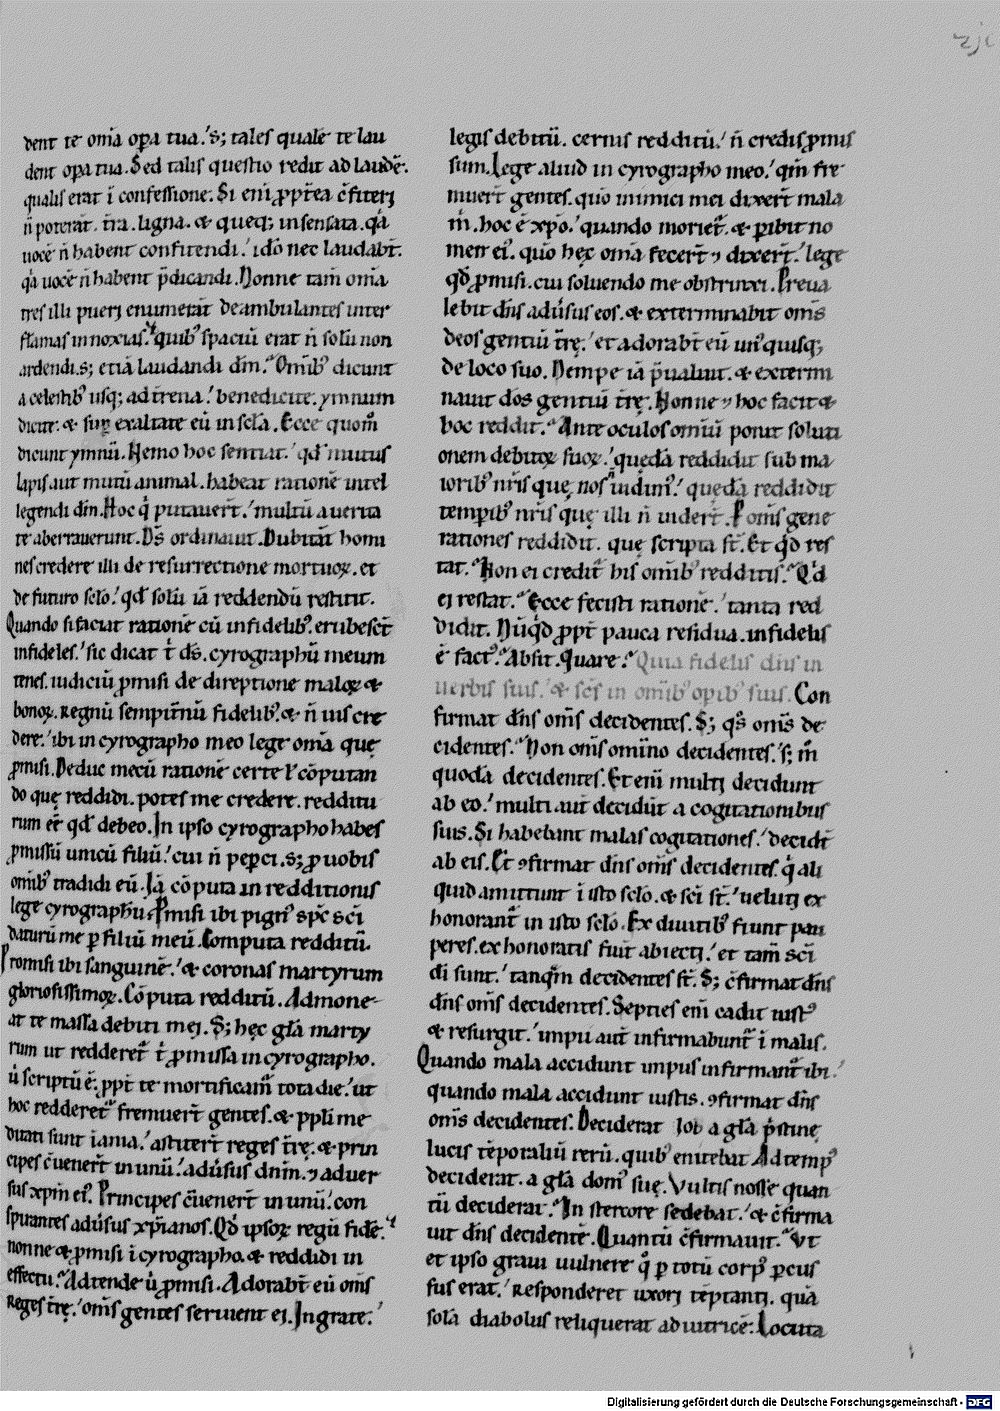 dent te om̄a op̱a tua.' s; tales quale te lau
dent op̱a tua. Sed talis questio redit ad laudē.
qualis erat ī confessione. Si eni ꝓpt̄ea c̄fiterj
n̄ poterāt. t̄ra. ligna. & queq; insensata. q̄a
uocē n̄ habent confitendi.' idō nec laudabt̄.
q̄a uocē n̄ habent p̄dicandi. Nonne tam̄ om̄ia
tres illi puerj enumerāt deambulantes inter
flāmas innoxias. quibꝰ spaciū erat n̄ solū non
ardendi. s; etiā laudandi dm̄. Om̄ibꝰ dicunt
a celestibꝰ usq; ad t̄rena.' benedicite. ymnum
dicite. & sup̱ exaltate eū in sc̄la. Ecce quom̄
dicunt ymnū. Nemo hoc sentiat.' qd̄ mutus
lapis aut mutū animal. habeat rationē intel
legendi dm̄. Hoc q̄ putauer̄t.' multū a uerita
te aberrauerunt. Ds̄ ordinauit. Dubitāt homi
nes credere illi de resurrectione mortuoꝝ. et
de futuro sclo.' qd̄ solū iā reddendū restitit.
Quando si faciat rationē cū infidelibꝰ. erubesc̄t
infideles.' sic dicat t̄ ds̄. cyrographū meum
tenes. iudiciū ꝓmisi de direptione maloꝝ &
bonoꝝ. Regnū sempit̄nū fidelibꝰ. & n̄ uis cre
dere.' ibi in cyrographo meo lege om̄ia quę
ꝓmisi. Deduc mecū rationē certe ł cōputan
do quę reddidi. potes me credere. redditu
rum eē qd̄ debeo. In ipso cyrographo habes
ꝓmissū unicū filiū.' cui n̄ pep̱ci. s; ꝓ uobis
om̄ibꝰ tradidi eū. Iā cōputa in redditionis
lege cyrographū. Ꝓmisi ibi pignꝰ spc̄ sc̄i
daturū me ꝑ filiū meū. Computa redditū.
Promisi ibi sanguinē.' & coronas martyrum
gloriosissimoꝝ. Cōputa redditū. Admone
at te massa debiti mej. S; hęc gl̄a marty
rum ut redderet̄ t̄ ꝓmissa in cyrographo.
ū scriptū ē. ꝓpt̄ te mortificam̄ tota die.' ut
hoc redderet̄ fremuer̄t gentes. & ppl̄i me
ditati sunt inania.' astiter̄t reges t̄rę. & prin
cipes c̄uener̄t in unū.' adūsus dnm̄. ⁊ aduer
sus xp̄m eiꝰ. Principes c̄uener̄t in unū.' con
spirantes adūsus xp̄ianos. Qd̄ ipsoꝝ regū fidē.
nonne & ꝓmisi ī cyrographo. & reddidi in
effectu. Adtende ū ꝓmisi. Adorabt̄ eū om̄s
Reges t̄rę.' om̄s gentes seruient ej. Ingrate.'
legis debitū. cernis redditū.' n̄ credis ꝓmis
sum. Lege aliud in cyrographo meo.' qm̄ fre
muer̄t gentes. quō inimici mei dixer̄t mala
m̄. hoc ē xp̄o.' quando moriet̄. & ꝑibit no
men eiꝰ. quō hęc om̄ia fecer̄t ⁊ dixer̄t.' lege
qd̄ ꝓmisi. cui soluendo me obstrinxi. Preua
lebit dn̄s adūsus eos. & exterminabit om̄s
deos gentiū t̄rę.' et adorabt̄ eū unꝰquisq;
de loco suo. Nempe iā p̄ualuit. & extermi
nauit dōs gentiū t̄rę. Nonne ⁊ hoc facit &
hoc reddit. Ante oculos om̄iū ponit soluti
onem debitoꝝ suoꝝ.' quędā reddidit sub ma
ioribꝰ nr̄is quę nos n̄ uidimꝰ.' quędā reddidit
temꝑibꝰ nr̄is quę illi n̄ uider̄t. P om̄s gene
rationes reddidit. quę scripta st̄. Et qd̄ res
tat. Non ei credit̄ his om̄ibꝰ redditis. Qd̄
ej restat. Ecce fecisti rationē.' tanta red
didit. Nūqd̄ ꝓpt̄ pauca residua. infidelis
ē factꝰ. Absit. Quare. Quia fidelis dn̄s in
uerbis suis.' & sc̄s in om̄ibꝰ opibꝰ suis. Con
firmat dn̄s om̄s decidentes. S; qs̄ om̄s de
cidentes. Non om̄s omīno decidentes. s; m̄
quodā decidentes. Et enī multj decidunt
ab eo.' multi aut̄ decidūt a cogitationibus
suis. Si habebant malas cogitationes.' decidt̄
ab eis. Et ꝯfirmat dn̄s om̄s decidentes. q̄ ali
quid amittunt ī isto sclo. & sc̄i st̄.' uelutj ex
honorant̄ in isto sclō. Ex diuitibꝰ fiunt pau
peres. ex honoratis fiūt abiectj.' et tam̄ sc̄i
di sunt.' tanqm̄ decidentes st̄. S; c̄firmat dn̄s
dn̄s om̄s decidentes. Septies enī cadit iustꝰ
& resurgit.' impii aut̄ infirmabunt̄ ī malis.
Quando mala accidunt impiis infirmant̄ ibi.'
quando mala accidunt iustis. ꝯfirmat dn̄s
om̄s decidentes. Deciderat Iob a gl̄a p̄stinę
lucis tēporaliū rerū. quibꝰ enitebat Ad tempꝰ
deciderat. a gl̄a domꝰ suę. Vultis nosse quan
tū deciderat. In stercore sedebat.' & c̄firma
uit dn̄s decidentē. Quantū c̄firmauit. Vt
et ipso graui uulnere q̄ ꝑ totū corpꝰ ꝑcus
sus erat.' Responderet uxorj tēptantj. quā
solā diabolus reliquerat adiutricē. Locuta
Digitalisierung gefördert durch die Deutsche Forschungsgemeinschaft - DFG